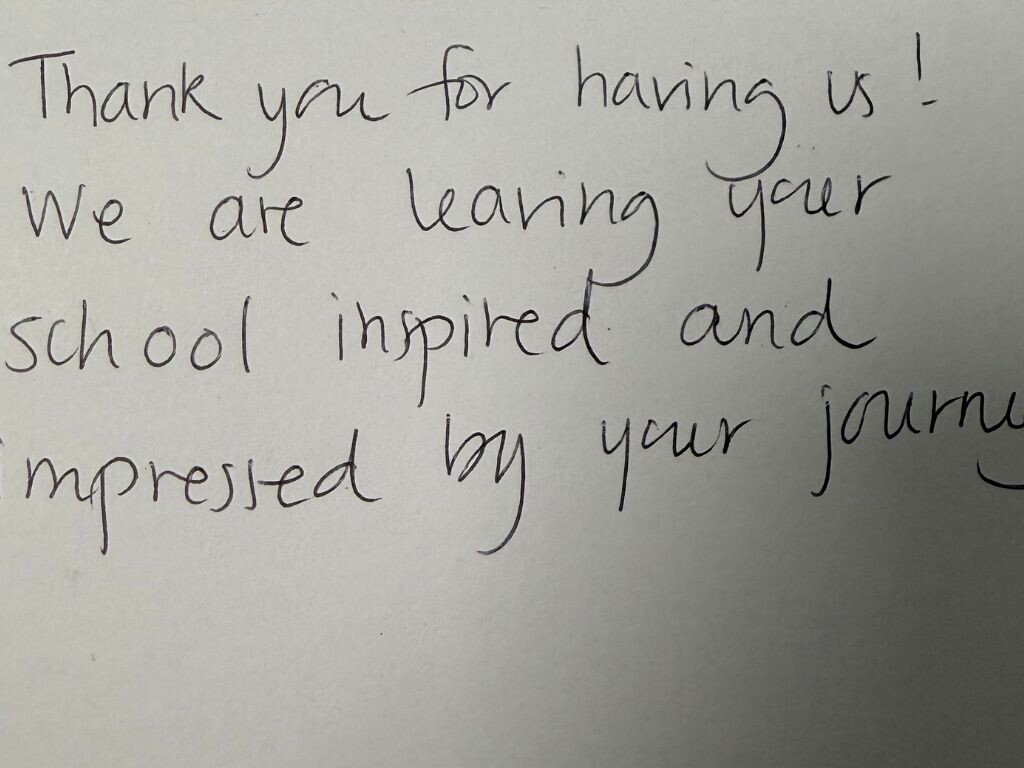 Thank you for having us!
We are leaving your
school inspired and
impressed by your journey